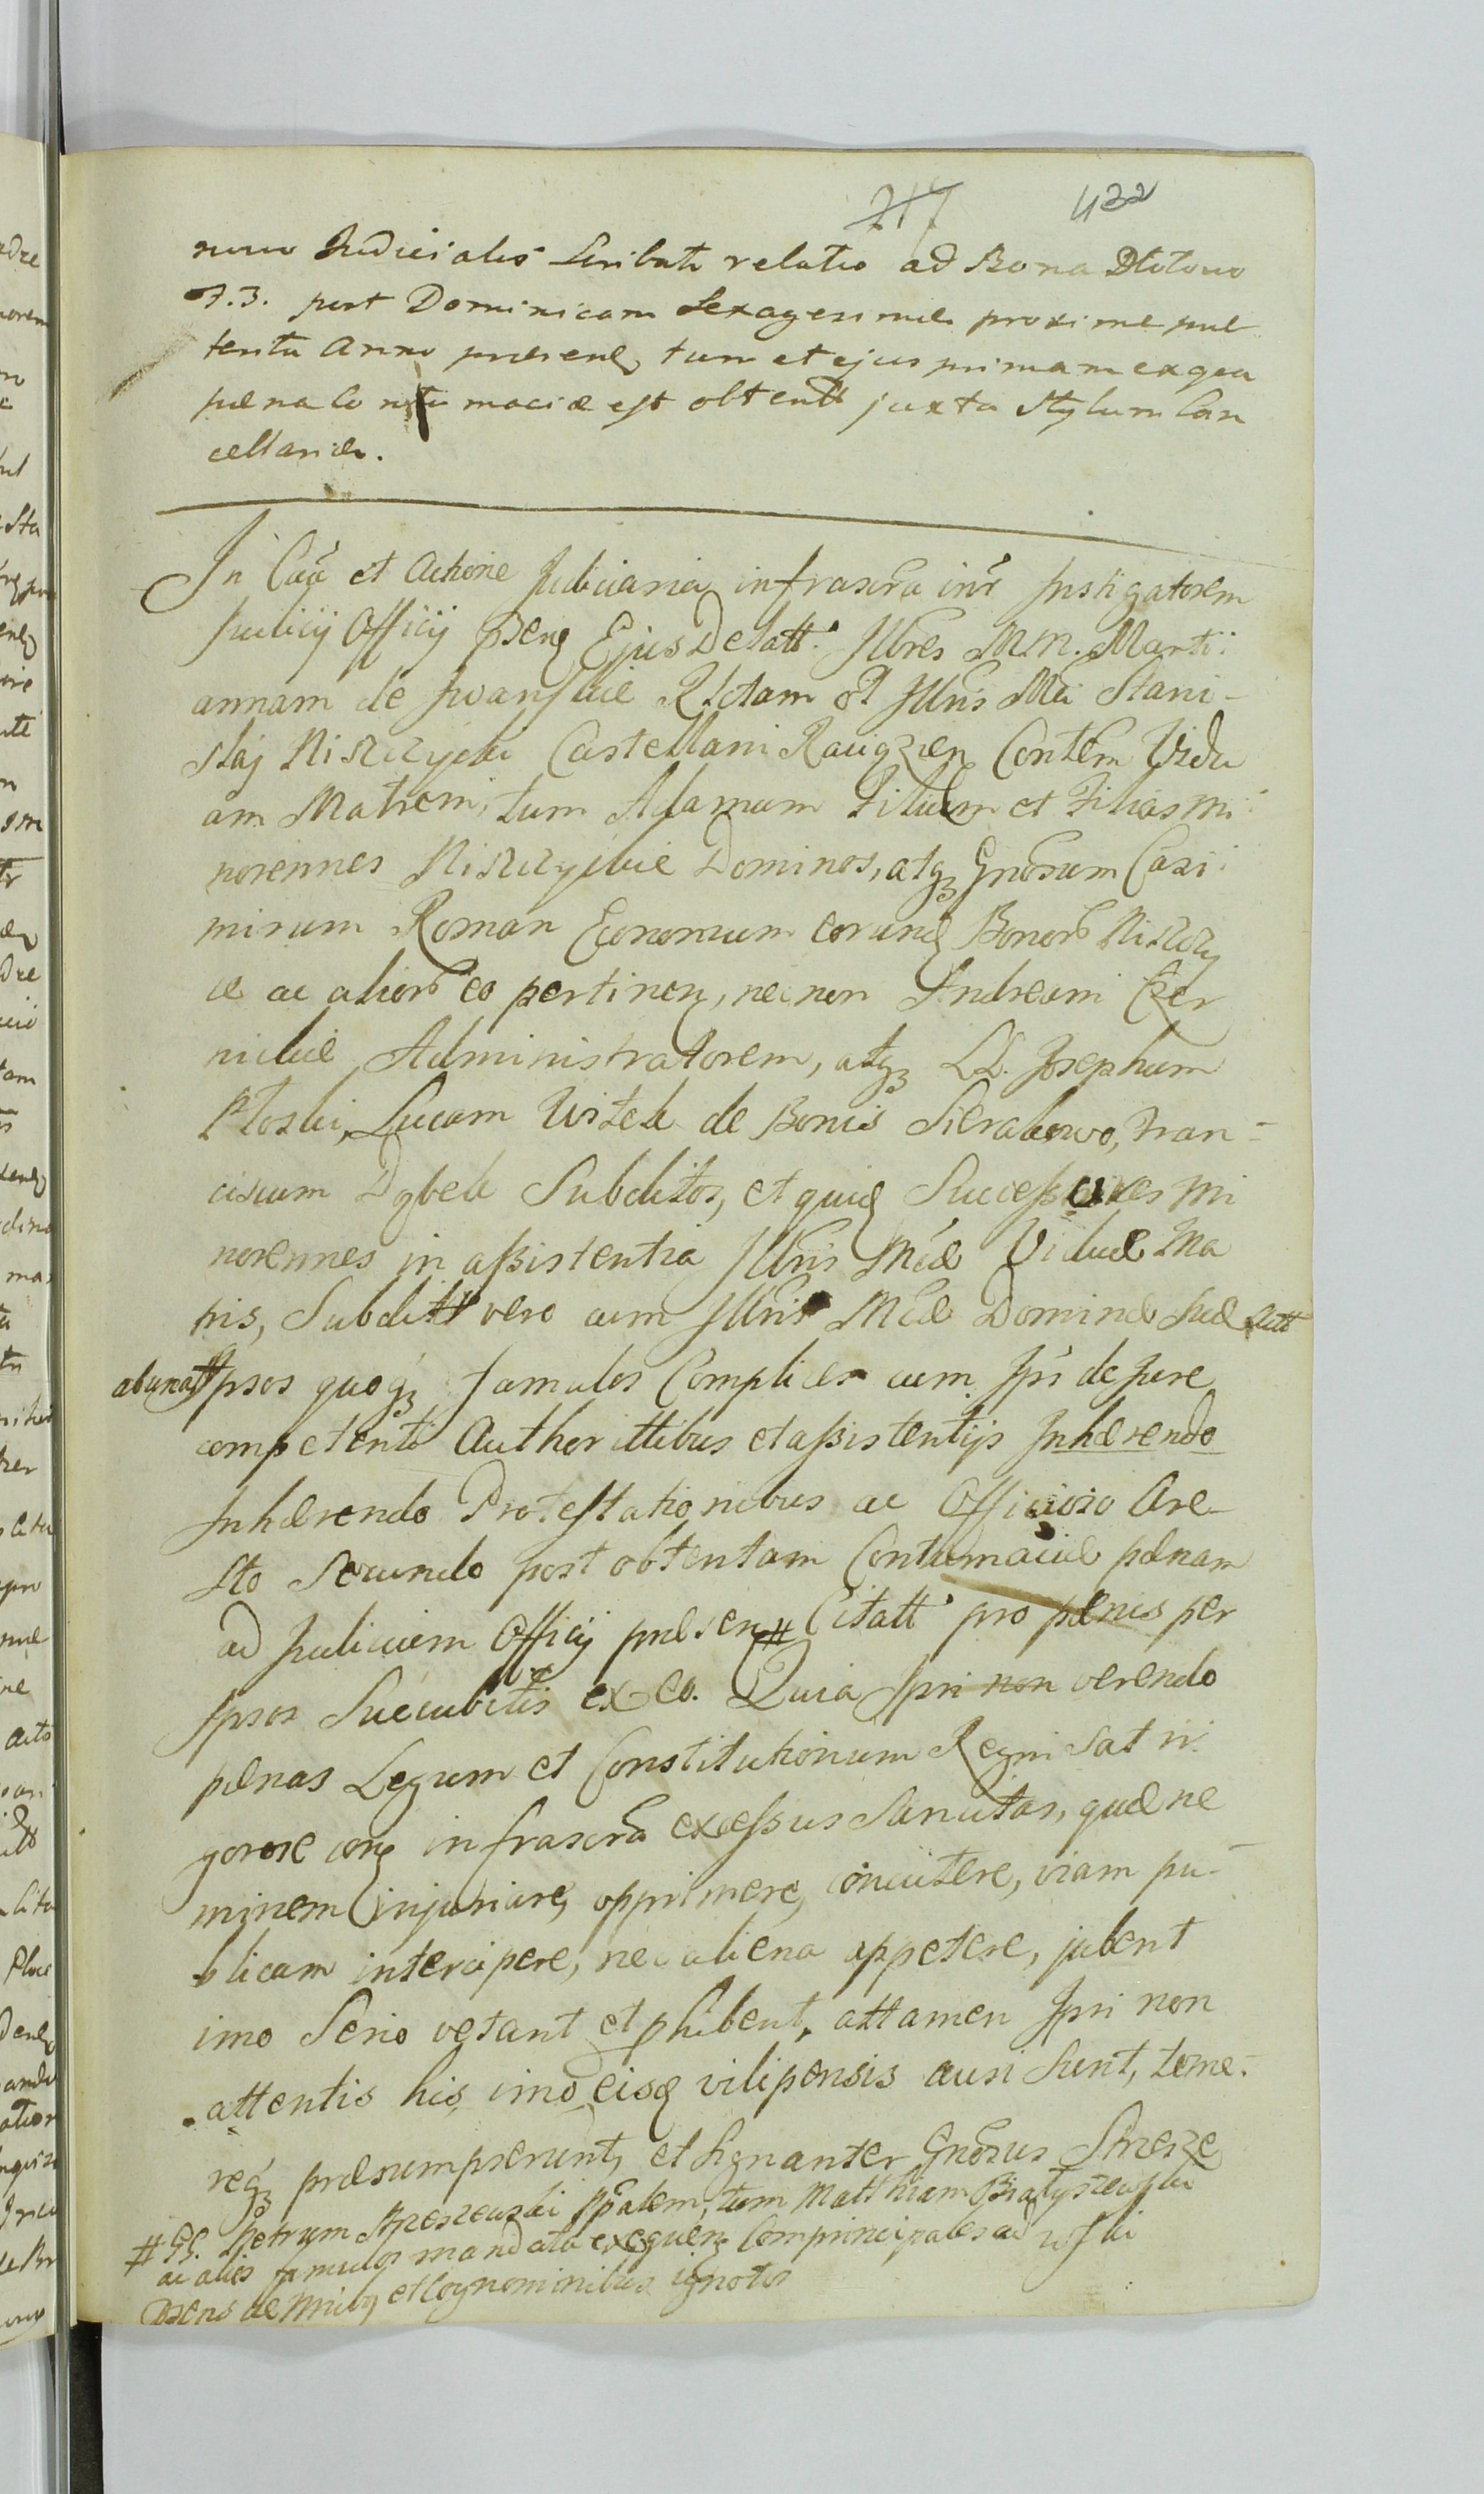 217 432
nuw Judicialis Scributi relatio ad Bona Dlotowo
F. 3. post Dominicam Sexagesimæ proxime præ
terita Anno præsenꝫ tum et ejus primam ex qua
pæna Contumaciæ est obtentt juxta Stylum Can
cellariæ.
In Cãa et Actione Judiciaria infrascra intr Instigatorem
Judicij Officij pseng Ejus Delatt. Jllres M.M. Marti:
annam de Iwanskie Relictam olt Jllris Mci Stani-
slaj Niszczycki Castellani Raciązen Contem Vidu
am Matrem, tum Adamum Filium et Filias mi:
norennes Niszczyckie Dominos, atqꝫ Gnosum Casi:
mirum Roman Economum eorund Bonorum Niszczy
ce ac aliorum eo pertinen, necnon Andream Czer
nickie Administratorem, atqꝫ LL. Josephum
Ploski, Lucam Witek de Bonis Sierakowo, Fran-
ciscum Dębek Subditos, et quid Successores mi
norennes in assistentia Jllris Mcæ Viduæ Ma
tris, Subditt vero cum Jllris Mcæ Dominæ suæ Autt
Ipsos quoqꝫ famulos Complices cum Ipsis de Jure
competenti Authorittibus et assistentijs Inhærendo
Inhærendo Protestationibus ac Officioso Are-
sto Secundo post obtentam Contumaciæ pænam
ad Judicium Officij præsen # Citatt pro pænis per
Ipsos Succubitis ex eo. Quia Ipsi non verendo
pænas Legum et Constitutionum Regni Sat ri
gorose con infrascra excessus Sancitas, quæ ne
minem injuriare, opprimere, concutere, viam pu-
blicam intercipere, nec aliena appetere, jubent
imo Serio vetant et phibent, attamen Ipsi non
attentis his, imo eisd vilipensis ausi sunt, teme-
reqꝫ præsumpserunt, et signanter Gnosus Strzeże
# GG. Petrum Strzeszewski Ppalem, tum Matthiam Białyszewski
ac alios famulos mandata exequen Comprincipales ad wski
psens de Nnibꝫ et Cognominibus ignotos